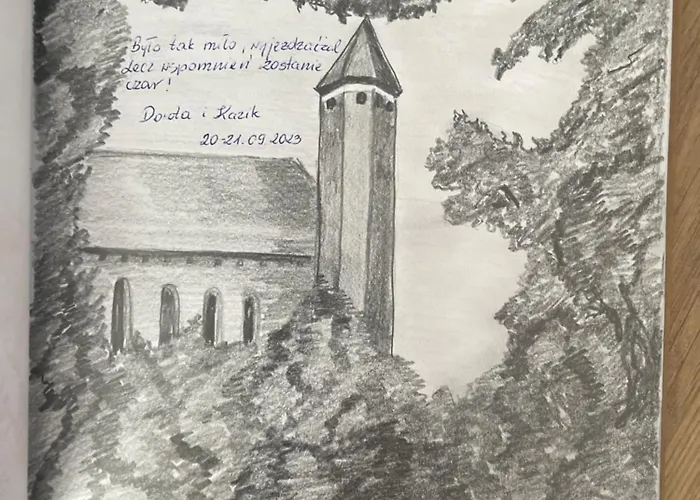 Było tak miło, wyjeżdżać żal
Lecz wspomnień zostanie
czar!
Dorota i Kazik
20-21.09.2023